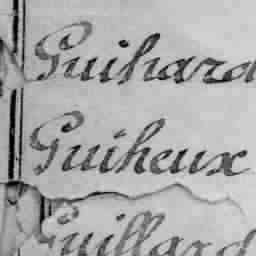 Guihard
Guiheux
Guillard